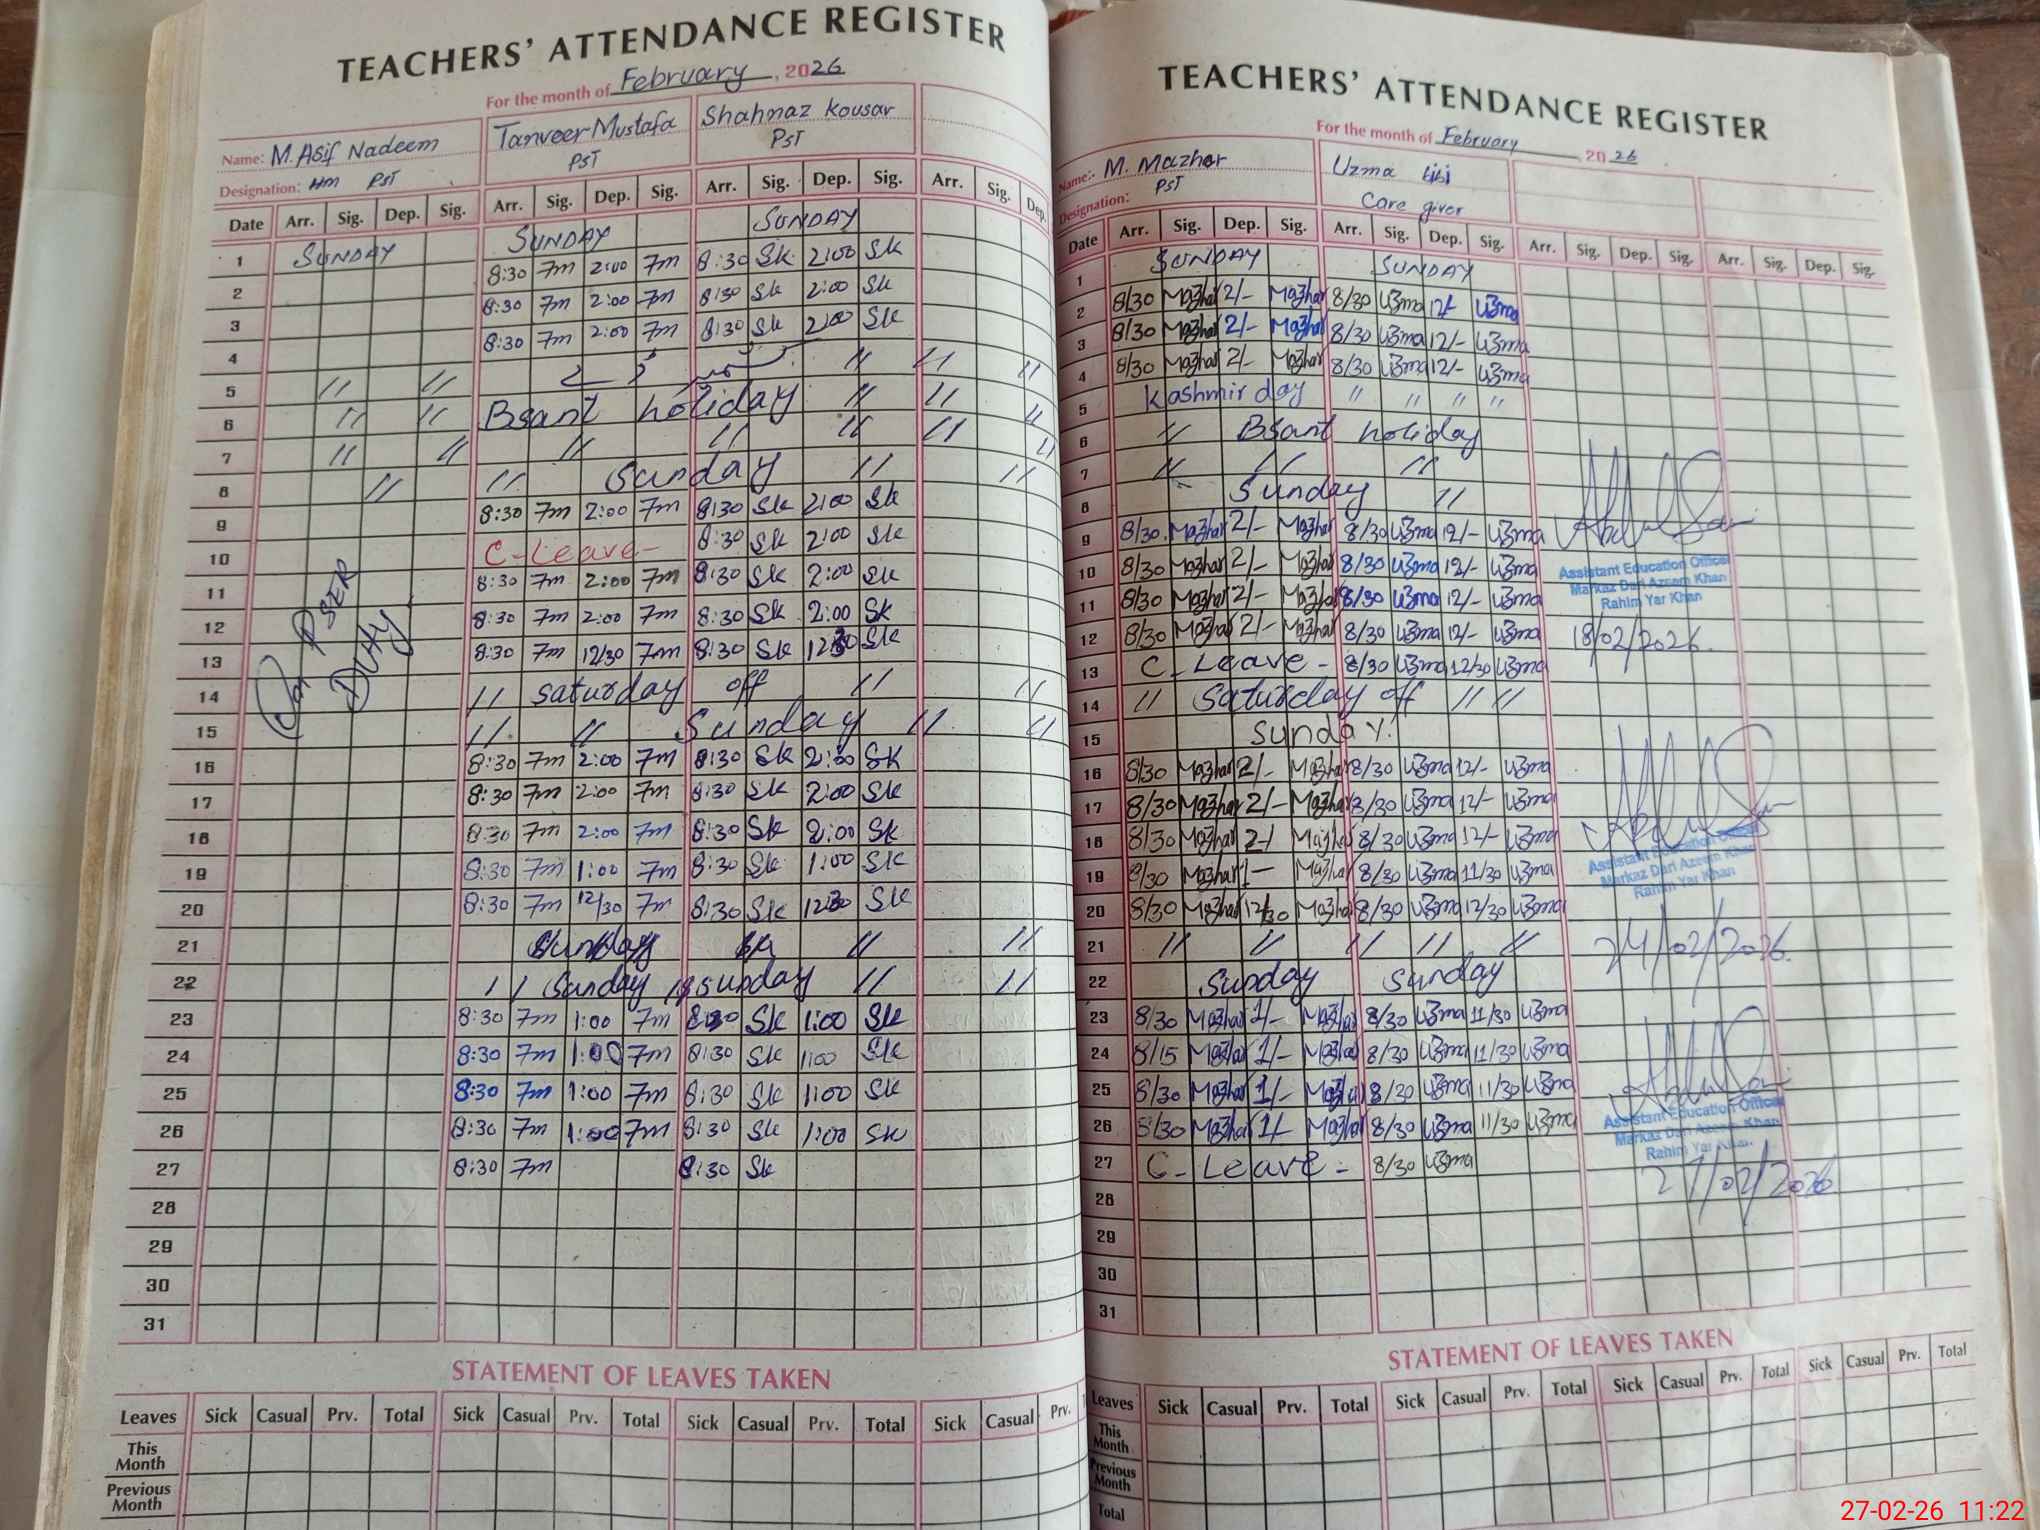 TEACHERS' ATTENDANCE REGISTER
For the month of February, 2026
Name: M. Asif Nadeem Tanveer Mustafa Shahnaz Kousar
Designation: Hm PST PST PST
Date Arr. Sig. Dep. Sig. Arr. Sig. Dep. Sig. Arr. Sig. Dep. Sig. Arr. Sig. Dep.
1 SUNDAY SUNDAY SUNDAY
2 8:30 7m 2:00 7m 8:30 Sk 2:00 Sk
3 8:30 7m 2:00 7m 8:30 Sk 2:00 Sk
4 8:30 7m 2:00 7m 8:30 Sk 2:00 Sk
5 // // // // //
6 // // Bsant holiday // // //
7 // // // // // // //
8 // // Sunday // //
9 8:30 7m 2:00 7m 8:30 Sk 2:00 Sk
10 C-Leave- 8:30 Sk 2:00 Sk
11 8:30 7m 2:00 7m 8:30 Sk 2:00 Sk
12 8:30 7m 2:00 7m 8:30 Sk 2:00 Sk
13 8:30 7m 12/30 7m 8:30 Sk 1230 Sk
On PSER
DUty
14 // saturday off // //
15 // // Sunday // //
16 8:30 7m 2:00 7m 8:30 Sk 2:00 SK
17 8:30 7m 2:00 7m 8:30 Sk 2:00 Sk
18 8:30 7m 2:00 7m 8:30 Sk 2:00 Sk
19 8:30 7m 1:00 7m 8:30 Sk 1:00 Sk
20 8:30 7m 12/30 7m 8:30 Sk 1230 Sk
21 Sunday // //
22 // Sunday sunday // //
23 8:30 7m 1:00 7m 8:30 Sk 1:00 Sk
24 8:30 7m 1:00 7m 8:30 Sk 1:00 Sk
25 8:30 7m 1:00 7m 8:30 Sk 1:00 Sk
26 8:30 7m 1:00 7m 8:30 Sk 1:00 Sk
27 8:30 7m 8:30 Sk
28
29
30
31
STATEMENT OF LEAVES TAKEN
Leaves Sick Casual Prv. Total Sick Casual Prv. Total Sick Casual Prv. Total Sick Casual Prv.
This Month
Previous Month
TEACHERS' ATTENDANCE REGISTER
For the month of February 2026
Name: M. Mazhar Uzma bibi
Designation: PST Care giver
Date Arr. Sig. Dep. Sig. Arr. Sig. Dep. Sig. Arr. Sig. Dep. Sig. Arr. Sig. Dep. Sig.
1 SUNDAY SUNDAY
2 8/30 Mazhar 2/- Mazhar 8/30 Uzma 12/- Uzma
3 8/30 Mazhar 2/- Mazhar 8/30 Uzma 12/- Uzma
4 8/30 Mazhar 2/- Mazhar 8/30 Uzma 12/- Uzma
5 Kashmir day // // // //
6 // Bsant holiday
7 // // //
8 Sunday //
9 8/30 Mazhar 2/- Mazhar 8/30 Uzma 12/- Uzma
10 8/30 Mazhar 2/- Mazhar 8/30 Uzma 12/- Uzma
11 8/30 Mazhar 2/- Mazhar 8/30 Uzma 12/- Uzma
12 8/30 Mazhar 2/- Mazhar 8/30 Uzma 12/- Uzma
13 C-Leave- 8/30 Uzma 12/30 Uzma
14 // Saturday off // //
15 Sunday.
16 8/30 Mazhar 2/- Mazhar 8/30 Uzma 12/- Uzma
17 8/30 Mazhar 2/- Mazhar 8/30 Uzma 12/- Uzma
18 8/30 Mazhar 2/ Mazhar 8/30 Uzma 12/- Uzma
19 8/30 Mazhar 1- Mazhar 8/30 Uzma 11/30 Uzma
20 8/30 Mazhar 12/30 Mazhar 8/30 Uzma 12/30 Uzma
21 // // // // //
22 Sunday Sunday
23 8/30 Mazhar 1/- Mazhar 8/30 Uzma 11/30 Uzma
24 8/15 Mazhar 1/- Mazhar 8/30 Uzma 11/30 Uzma
25 8/30 Mazhar 1/- Mazhar 8/30 Uzma 11/30 Uzma
26 8/30 Mazhar 1/- Mazhar 8/30 Uzma 11/30 Uzma
27 C-Leave- 8/30 Uzma
28
29
30
31
Assistant Education Officer
Markaz Dari Azeem Khan
Rahim Yar Khan
18/02/2026.
Assistant Education Officer
Markaz Dari Azeem Khan
Rahim Yar Khan
24/02/2026.
Assistant Education Officer
Markaz Dari Azeem Khan
Rahim Yar Khan
27/02/2026
STATEMENT OF LEAVES TAKEN
Leaves Sick Casual Prv. Total Sick Casual Prv. Total Sick Casual Prv. Total Sick Casual Prv. Total
This Month
Previous Month
Total
27-02-26 11:22